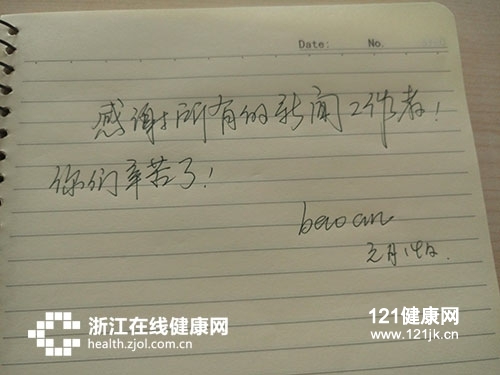 Date: No.
感谢所有的新闻工作者！
你们辛苦了！
baoan
元月14日.
浙江在线健康网
health.zjol.com.cn
121健康网
www.121jk.cn